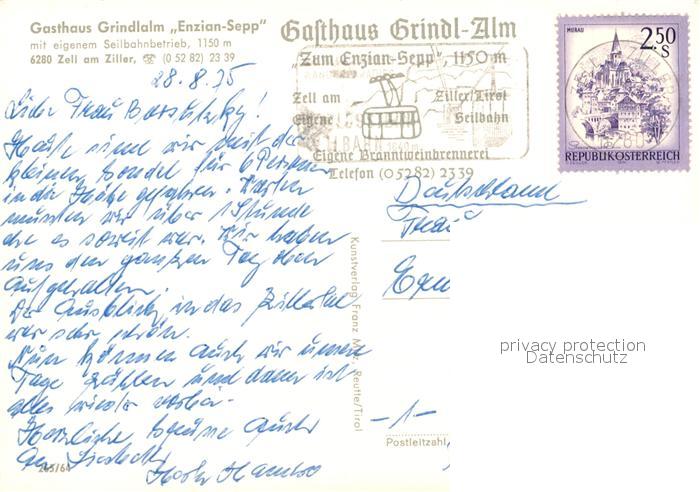 Gasthaus Grindlalm „Enzian-Sepp"
mit eigenem Seilbahnbetrieb, 1150 m
6280 Zell am Ziller, ☎ (0 52 82) 23 39
Gasthaus Grindl-Alm
„Zum Enzian-Sepp", 1150 m
Zell am Ziller/Tirol
eigene Seilbahn
Eigene Branntweinbrennerei
Telefon (05282) 2339
MURAU
2.50
S
REPUBLIK ÖSTERREICH
28.8.75
Liebe Frau
Heute sind wir mit der
kleinen Gondel für 6 Personen
in die Höhe gefahren. Warten
mussten wir über 1 Stunde
ehe es soweit war. Wir haben
uns den ganzen Tag oben
aufgehalten.
Der Ausblick in das Zillertal
war sehr schön.
Nun können auch wir unsere
Tage zählen und dann ist
alles wieder vorbei.
Herzliche Grüße auch
Deutschland
Frau
Kunstverlag Franz Reutte/Tirol
-1-
Postleitzahl
265/64
privacy protection
Datenschutz